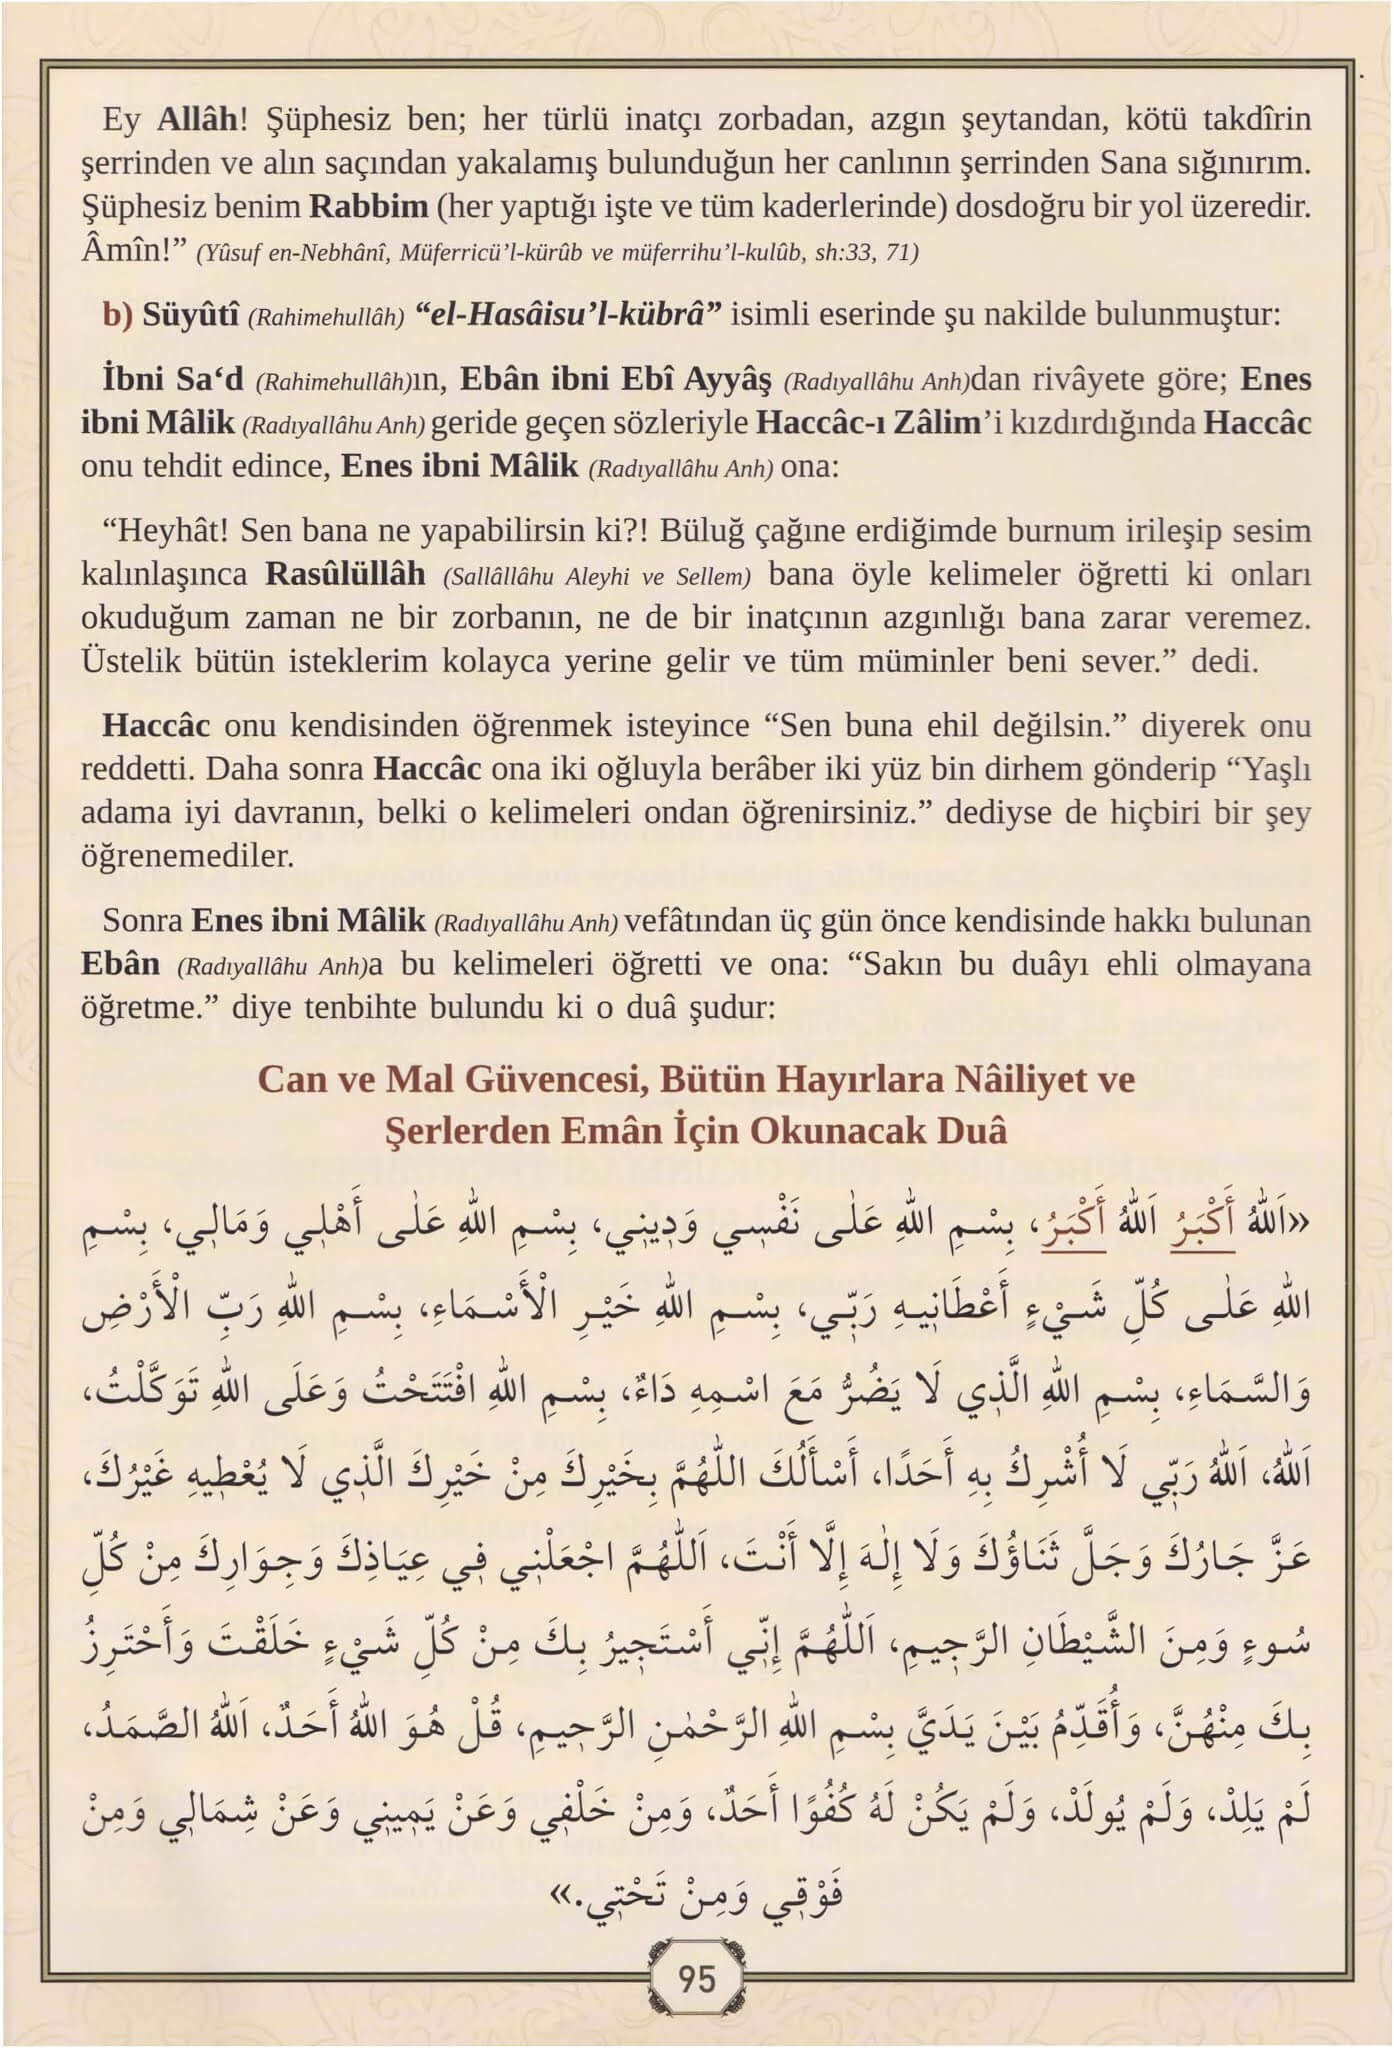 Ey Allâh! Şüphesiz ben; her türlü inatçı zorbadan, azgın şeytandan, kötü takdîrin
şerrinden ve alın saçından yakalamış bulunduğun her canlının şerrinden Sana sığınırım.
Şüphesiz benim Rabbim (her yaptığı işte ve tüm kaderlerinde) dosdoğru bir yol üzeredir.
Âmîn!” (Yûsuf en-Nebhânî, Müferricü’l-kürûb ve müferrihu’l-kulûb, sh:33, 71)
b) Süyûtî (Rahimehullâh) “el-Hasâisu’l-kübrâ” isimli eserinde şu nakilde bulunmuştur:
İbni Sa‘d (Rahimehullâh)ın, Ebân ibni Ebî Ayyâş (Radıyallâhu Anh)dan rivâyete göre; Enes
ibni Mâlik (Radıyallâhu Anh) geride geçen sözleriyle Haccâc-ı Zâlim’i kızdırdığında Haccâc
onu tehdit edince, Enes ibni Mâlik (Radıyallâhu Anh) ona:
“Heyhât! Sen bana ne yapabilirsin ki?! Büluğ çağıne erdiğimde burnum irileşip sesim
kalınlaşınca Rasûlüllâh (Sallâllâhu Aleyhi ve Sellem) bana öyle kelimeler öğretti ki onları
okuduğum zaman ne bir zorbanın, ne de bir inatçının azgınlığı bana zarar veremez.
Üstelik bütün isteklerim kolayca yerine gelir ve tüm müminler beni sever.” dedi.
Haccâc onu kendisinden öğrenmek isteyince “Sen buna ehil değilsin.” diyerek onu
reddetti. Daha sonra Haccâc ona iki oğluyla berâber iki yüz bin dirhem gönderip “Yaşlı
adama iyi davranın, belki o kelimeleri ondan öğrenirsiniz.” dediyse de hiçbiri bir şey
öğrenemediler.
Sonra Enes ibni Mâlik (Radıyallâhu Anh) vefâtından üç gün önce kendisinde hakkı bulunan
Ebân (Radıyallâhu Anh)a bu kelimeleri öğretti ve ona: “Sakın bu duâyı ehli olmayana
öğretme.” diye tenbihte bulundu ki o duâ şudur:
Can ve Mal Güvencesi, Bütün Hayırlara Nâiliyet ve
Şerlerden Emân İçin Okunacak Duâ
«اَللهُ أَكْبَرُ اَللهُ أَكْبَرُ، بِسْمِ اللهِ عَلٰى نَفْسِي وَدِينِي، بِسْمِ اللهِ عَلٰى أَهْلِي وَمَالِي، بِسْمِ
اللهِ عَلٰى كُلِّ شَيْءٍ أَعْطَانِيهِ رَبِّي، بِسْمِ اللهِ خَيْرِ الْأَسْمَاءِ، بِسْمِ اللهِ رَبِّ الْأَرْضِ
وَالسَّمَاءِ، بِسْمِ اللهِ الَّذِي لَا يَضُرُّ مَعَ اسْمِهِ دَاءٌ، بِسْمِ اللهِ افْتَتَحْتُ وَعَلَى اللهِ تَوَكَّلْتُ،
اَللهُ، اَللهُ رَبِّي لَا أُشْرِكُ بِهِ أَحَدًا، أَسْأَلُكَ اللّٰهُمَّ بِخَيْرِكَ مِنْ خَيْرِكَ الَّذِي لَا يُعْطِيهِ غَيْرُكَ،
عَزَّ جَارُكَ وَجَلَّ ثَنَاؤُكَ وَلَا إِلٰهَ إِلَّا أَنْتَ، اَللّٰهُمَّ اجْعَلْنِي فِي عِيَاذِكَ وَجِوَارِكَ مِنْ كُلِّ
سُوءٍ وَمِنَ الشَّيْطَانِ الرَّجِيمِ، اَللّٰهُمَّ إِنِّي أَسْتَجِيرُ بِكَ مِنْ كُلِّ شَيْءٍ خَلَقْتَ وَأَحْتَرِزُ
بِكَ مِنْهُنَّ، وَأُقَدِّمُ بَيْنَ يَدَيَّ بِسْمِ اللهِ الرَّحْمٰنِ الرَّحِيمِ، قُلْ هُوَ اللهُ أَحَدٌ، اَللهُ الصَّمَدُ،
لَمْ يَلِدْ، وَلَمْ يُولَدْ، وَلَمْ يَكُنْ لَهُ كُفُوًا أَحَدٌ، وَمِنْ خَلْفِي وَعَنْ يَمِينِي وَعَنْ شِمَالِي وَمِنْ
فَوْقِي وَمِنْ تَحْتِي.»
95